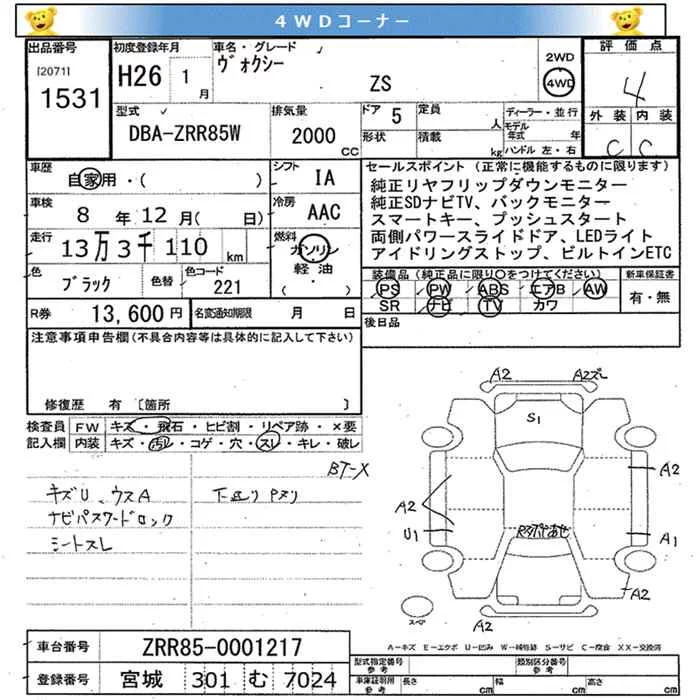 4WDコーナー
出品番号
[2071]
1531
初度登録年月
H26 1月
車名・グレード
ヴォクシー
ZS
2WD
4WD
評価点
4
外装 内装
C C
型式
DBA-ZRR85W
排気量
2000 CC
ドア 5
形状
定員 人
積載 kg
ディーラー・並行
モデル年式 年
ハンドル 左・右
車歴
自家用・( )
車検
8年12月( 日)
走行
13万3千110 km
色
ブラック
色替
色コード
221
シフト
IA
冷房
AAC
燃料
ガソリン
軽油
( ・ )
セールスポイント(正常に機能するものに限ります)
純正リヤフリップダウンモニター
純正SDナビTV、バックモニター
スマートキー、プッシュスタート
両側パワースライドドア、LEDライト
アイドリングストップ、ビルトインETC
装備品(純正品に限り○をつけてください)
PS PW ABS エアB AW
SR ナビ TV カワ
新車保証書
有・無
後日品
R券 13,600円
名変通知期限 月 日
注意事項申告欄(不具合内容等は具体的に記入して下さい)
修復歴 有 〔箇所 〕
検査員記入欄
FW キズ・飛石・ヒビ割・リペア跡・×要
内装 キズ・汚レ・コゲ・穴・スレ・キレ・破レ
BT-X
キズU、ウスA
ナビパスワードロック
シートスレ
下廻り Pヌリ
A2 A2ズレ
S1
A2
A2
U1
A1
A2
A2
スペア
A=キズ E=エクボ U=凹み W=補修跡 S=サビ C=腐食 XX=交換済
車台番号
ZRR85-0001217
登録番号
宮城 301 む 7024
型式指定番号 参考
類別区分番号 参考
車庫証明用 参考
長さ cm 幅 cm 高さ cm